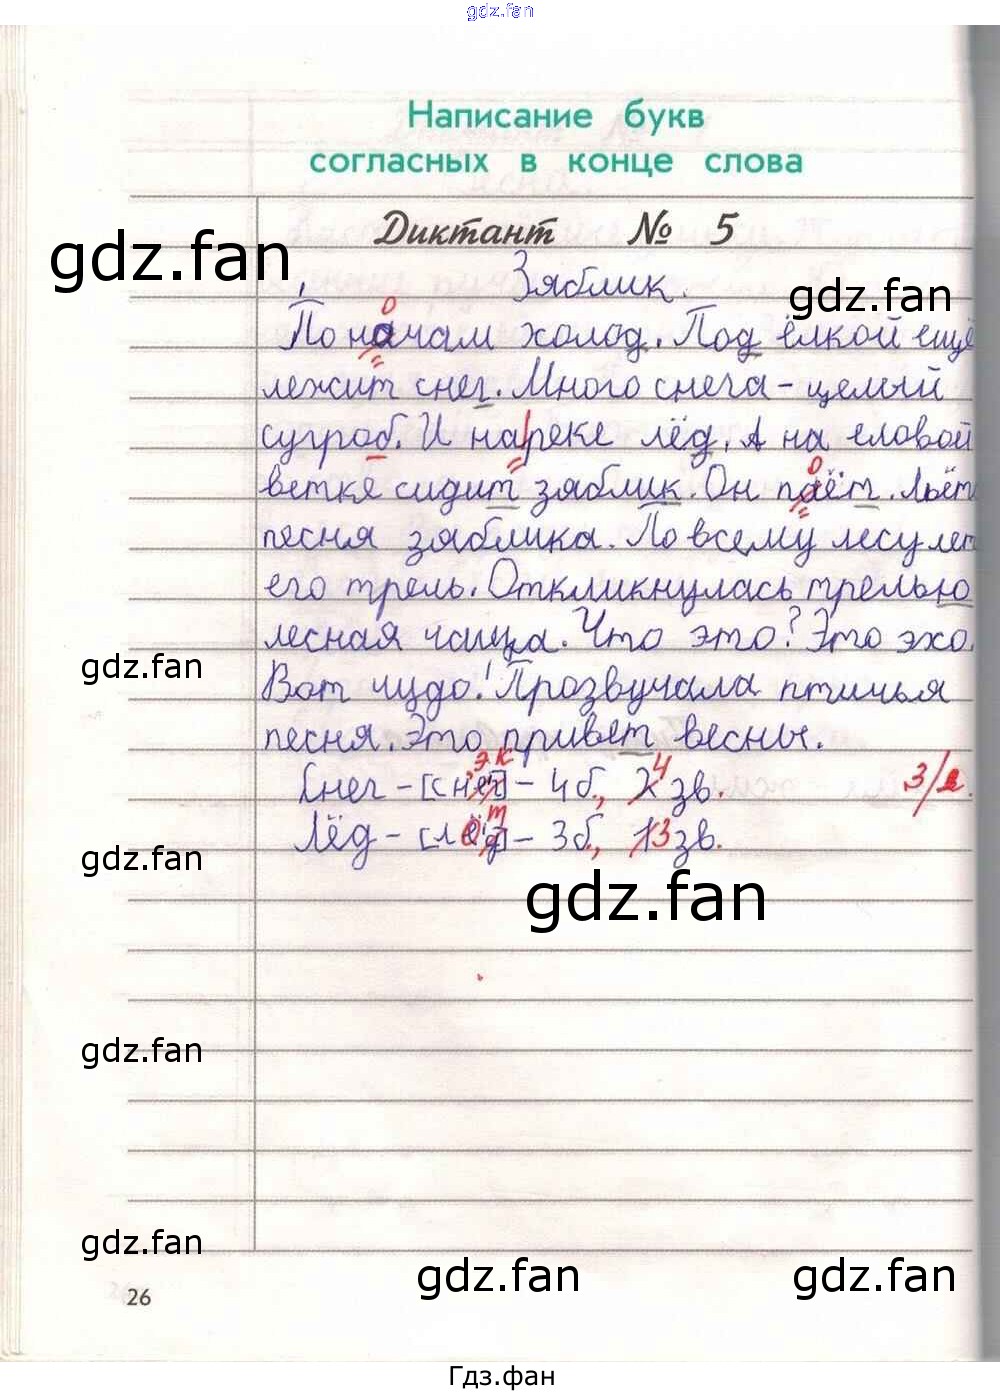 gdz.fan
Написание букв
согласных в конце слова
Диктант № 5
gdz.fan
Зяблик.
gdz.fan
о
По начам холод. Под ёлкой ещё
лежит снег. Много снега - целый
сугроб. И на|реке лёд. А на еловой
о
ветке сидит зяблик. Он паёт. Льёт
песня зяблика. По всему лесу
его трель. Откликнулась трелью
лесная чаща. Что это? Это эхо.
gdz.fan
Вот чудо! Прозвучала птичья
песня. Это привет весны.
э к 4
Снег - [снег] - 4 б., 2 зв. 3/2
т
Лёд - [лёд] - 3 б., 13 зв.
gdz.fan
gdz.fan
gdz.fan
gdz.fan
gdz.fan gdz.fan
26
Гдз.фан